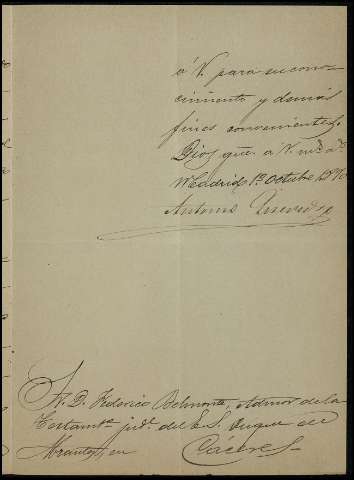 á V. para su cono-
cimiento y demás
fines convenientes.
Dios gue. a V. ms. as.
Madrid 1º Octubre
Antonio
Sr. D. Federico Belmonte, Admor de la
Testamta. judl. del E. S. Duque de
Abrantes, en Cáceres